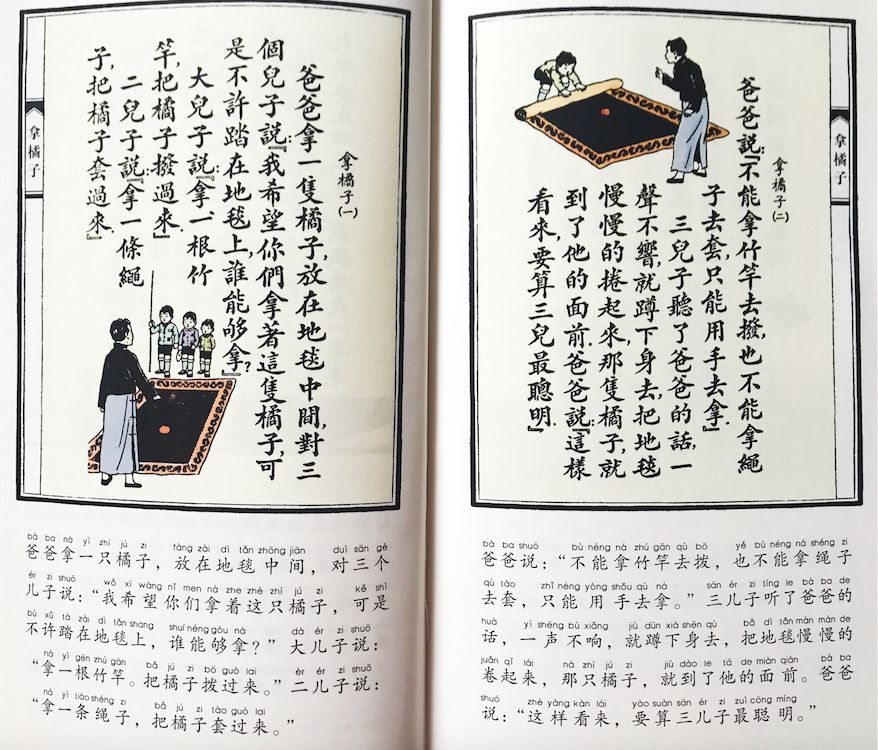 拿橘子
拿橘子(一)
爸爸拿一隻橘子,放在地毯中間,對三
個兒子說:『我希望你們拿著這隻橘子,可
是不許踏在地毯上,誰能够拿?』
大兒子說:『拿一根竹
竿,把橘子撥過來.』
二兒子說:『拿一條繩
子,把橘子套過來.』
bà ba ná yì zhī jú zi fàng zài dì tǎn zhōng jiān duì sān gè
爸爸拿一只橘子，放在地毯中间，对三个
ér zi shuō wǒ xī wàng nǐ men ná zhe zhè zhī jú zi kě shì
儿子说：“我希望你们拿着这只橘子，可是
bù xǔ tà zài dì tǎn shang shuí néng gòu ná dà ér zi shuō
不许踏在地毯上，谁能够拿？”大儿子说：
ná yì gēn zhú gān bǎ jú zi bō guò lai èr ér zi shuō
“拿一根竹竿。把橘子拨过来。”二儿子说：
ná yì tiáo shéng zi bǎ jú zi tào guò lai
“拿一条绳子，把橘子套过来。”
拿橘子
拿橘子(二)
爸爸說:『不能拿竹竿去撥,也不能拿繩
子去套,只能用手去拿.』
三兒子聽了爸爸的話,一
聲不響,就蹲下身去,把地毯
慢慢的捲起來,那隻橘子,就
到了他的面前.爸爸說:『這樣
看來,要算三兒最聰明.』
bà ba shuō bù néng ná zhú gān qù bō yě bù néng ná shéng zi
爸爸说：“不能拿竹竿去拨，也不能拿绳子
qù tào zhǐ néng yòng shǒu qù ná sān ér zi tīng le bà ba de
去套，只能用手去拿。”三儿子听了爸爸的
huà yì shēng bù xiǎng jiù dūn xià shēn qù bǎ dì tǎn màn màn de
话，一声不响，就蹲下身去，把地毯慢慢的
juǎn qǐ lái nà zhī jú zi jiù dào le tā de miàn qián bà ba
卷起来，那只橘子，就到了他的面前。爸爸
shuō zhè yàng kàn lái yào suàn sān ér zi zuì cōng míng
说：“这样看来，要算三儿子最聪明。”